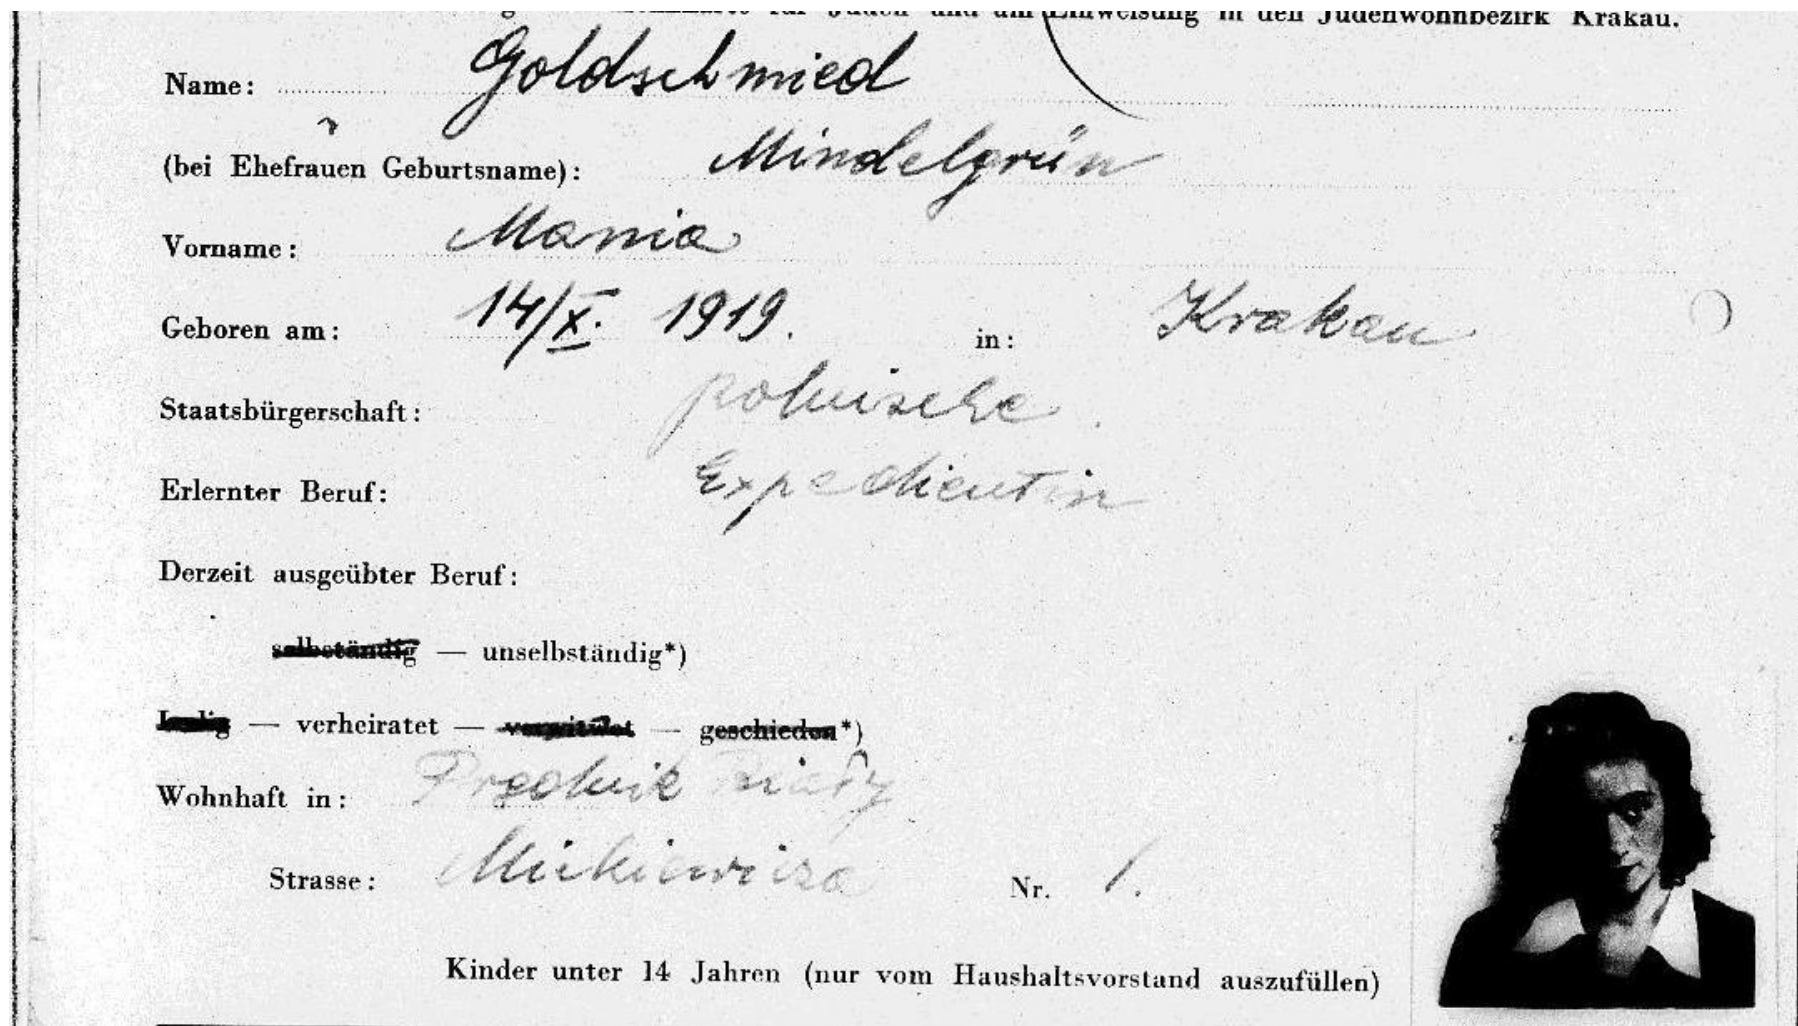 für Juden und um Einweisung in den Judenwohnbezirk Krakau.
Name: Goldschmied
(bei Ehefrauen Geburtsname): Mindelgrün
Vorname: Mania
Geboren am: 14/X. 1919. in: Krakau
Staatsbürgerschaft: polnische
Erlernter Beruf: Expedientin
Derzeit ausgeübter Beruf:
selbständig — unselbständig*)
Ledig — verheiratet — verwitwet — geschieden*)
Wohnhaft in: Prądnik Biały
Strasse: Mickiewicza Nr. 1.
Kinder unter 14 Jahren (nur vom Haushaltsvorstand auszufüllen)